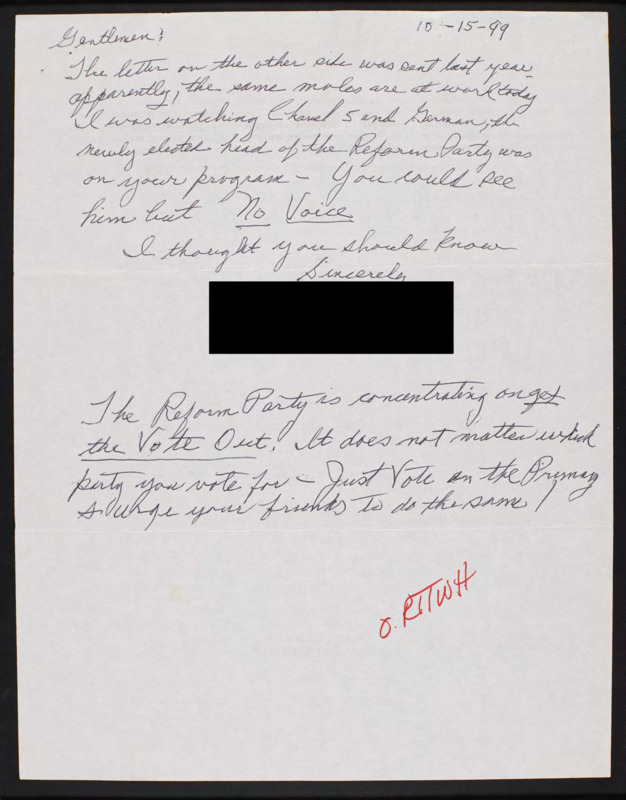 10-15-99
Gentlemen:
The letter on the other side was sent last year.
apparently, the same moles are at work today
I was watching Chanel 5 and German, the
newly elected head of the Reform Party was
on your program - You could see
him but No Voice
I thought you should know
Sincerely
The Reform Party is concentrating on get
the Vote Out. It does not matter which
party you vote for - Just Vote in the Primary
& urge your friends to do the same!
O. RTTWH